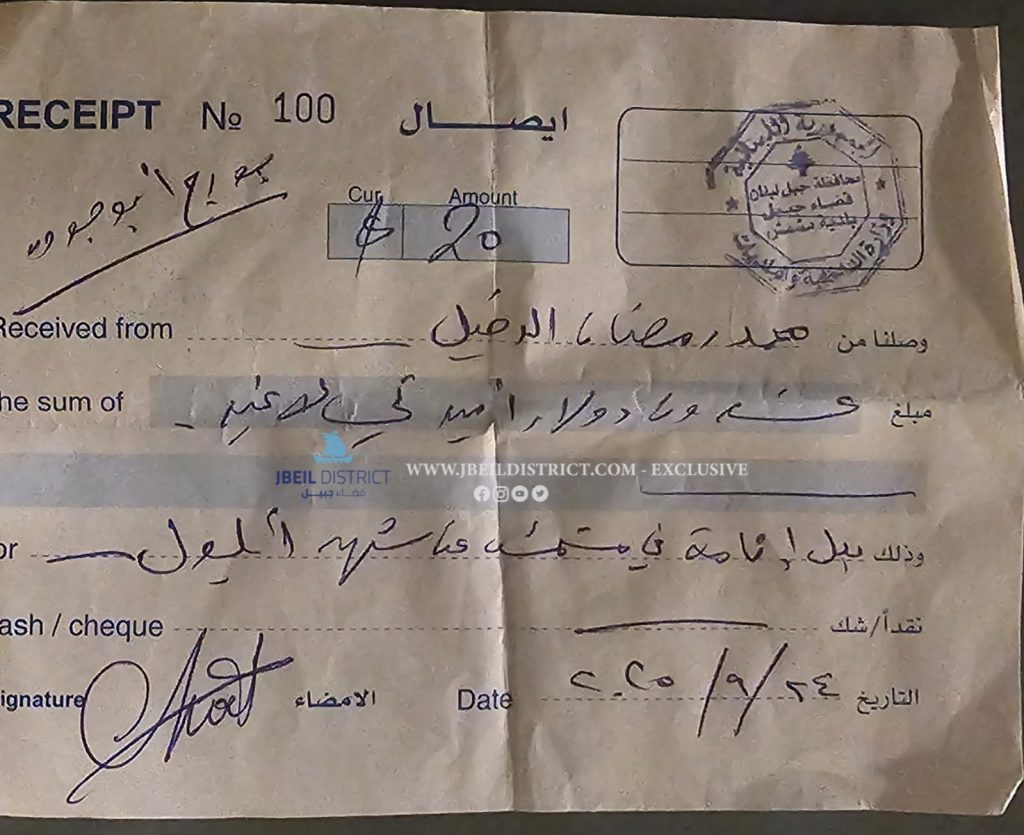 RECEIPT № 100 ايصال
الجمهورية اللبنانية
محافظة جبل لبنان
قضاء جبيل
بلدية مشمش
وزارة الداخلية والبلديات
Cur. Amount
$ 20
Received from محمد رمضان الدخيل وصلنا من
he sum of مبلغ عشرون دولار أميركي لا غير
JBEIL DISTRICT
قضاء جبيل
WWW.JBEILDISTRICT.COM - EXCLUSIVE
or وذلك بدل إقامة في مشمش عن شهر أيلول
ash / cheque نقداً/شك
ignature الامضاء Date ٢٠٢٥/٩/٢٤ التاريخ